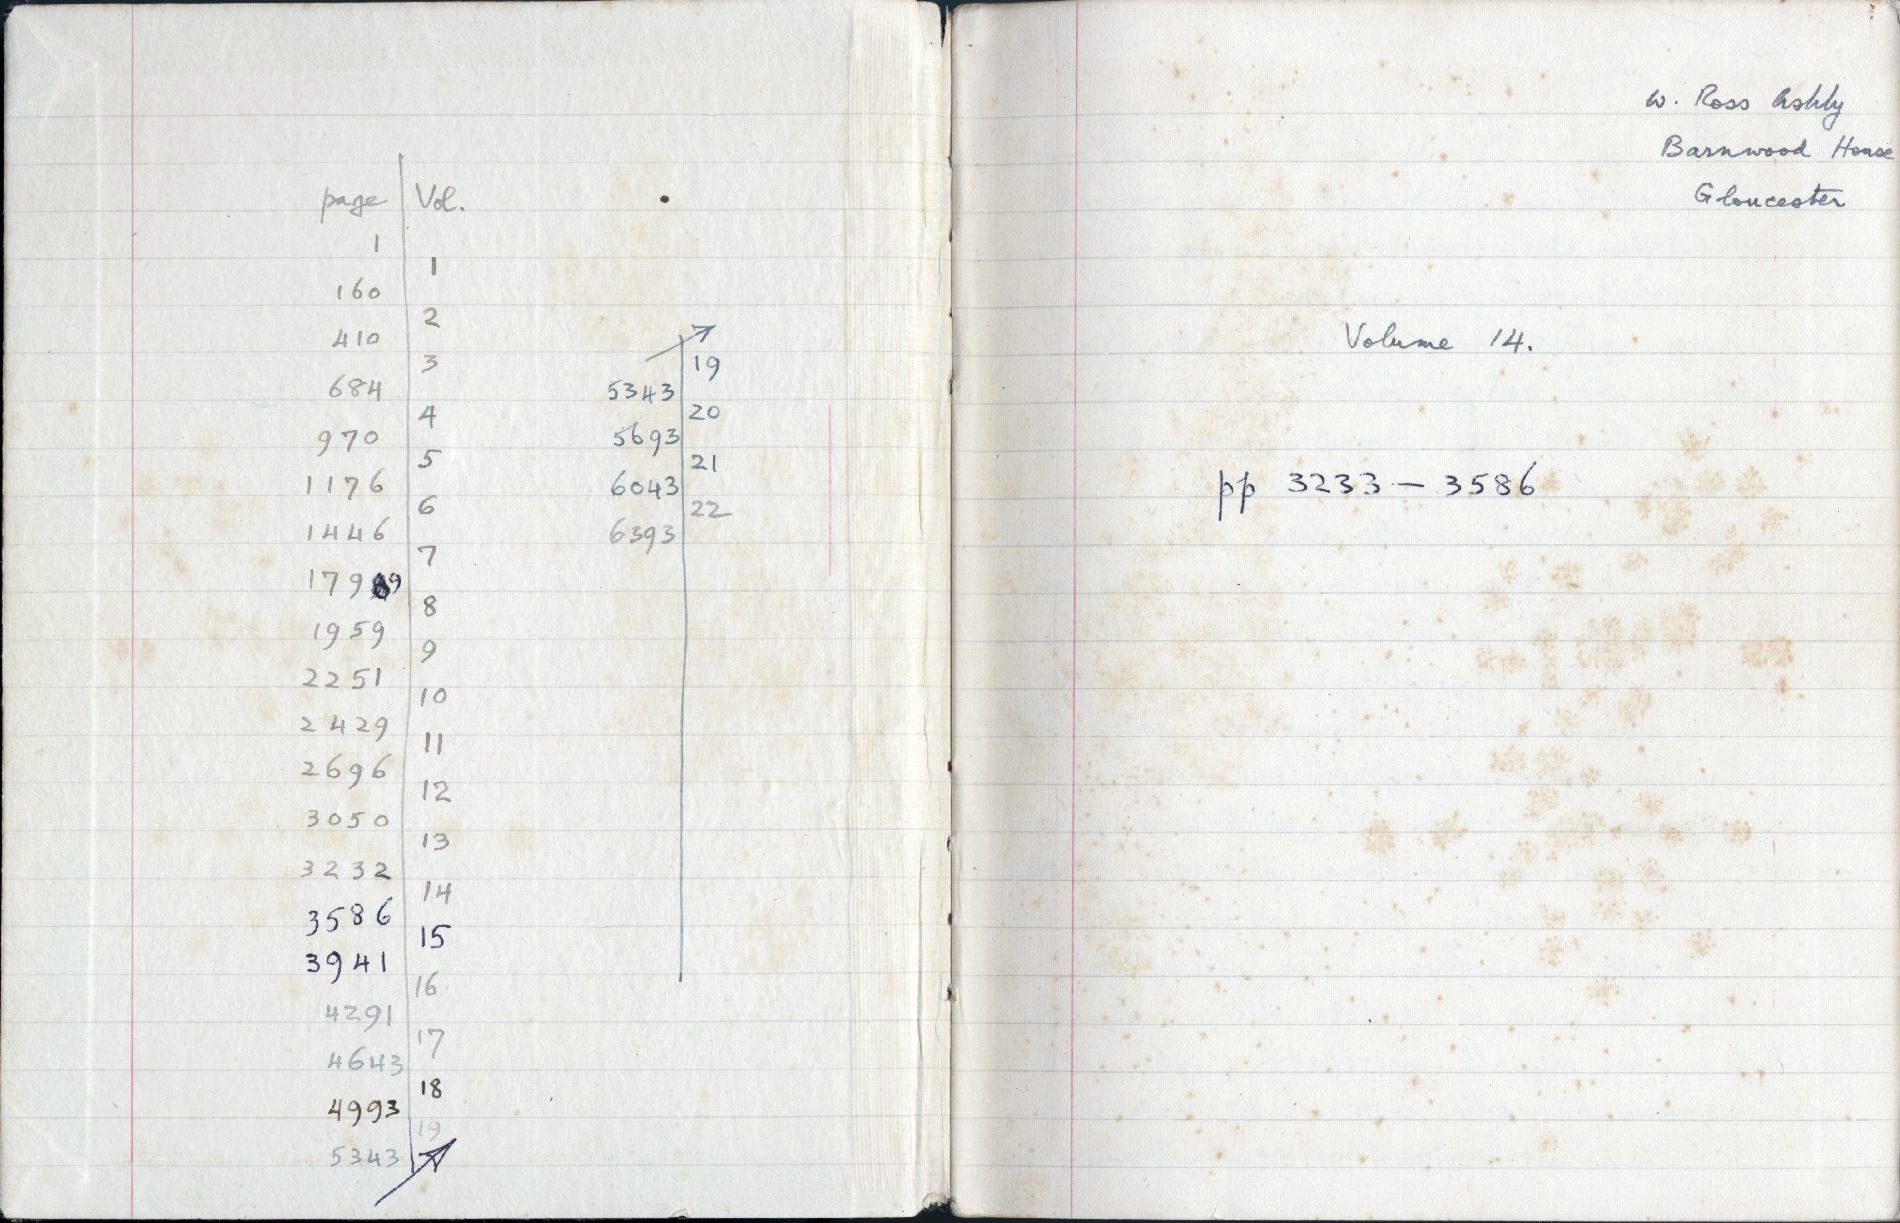 page Vol.
1
1
160
2
410
3
684
4
970
5
1176
6
1446
7
179 9
8
1959
9
2251
10
2429
11
2696
12
3050
13
3232
14
3586
15
3941
16
4291
17
4643
18
4993
19
5343
19
5343
20
5693
21
6043
22
6393
W. Ross Ashby
Barnwood House
Gloucester
Volume 14.
pp 3233 — 3586